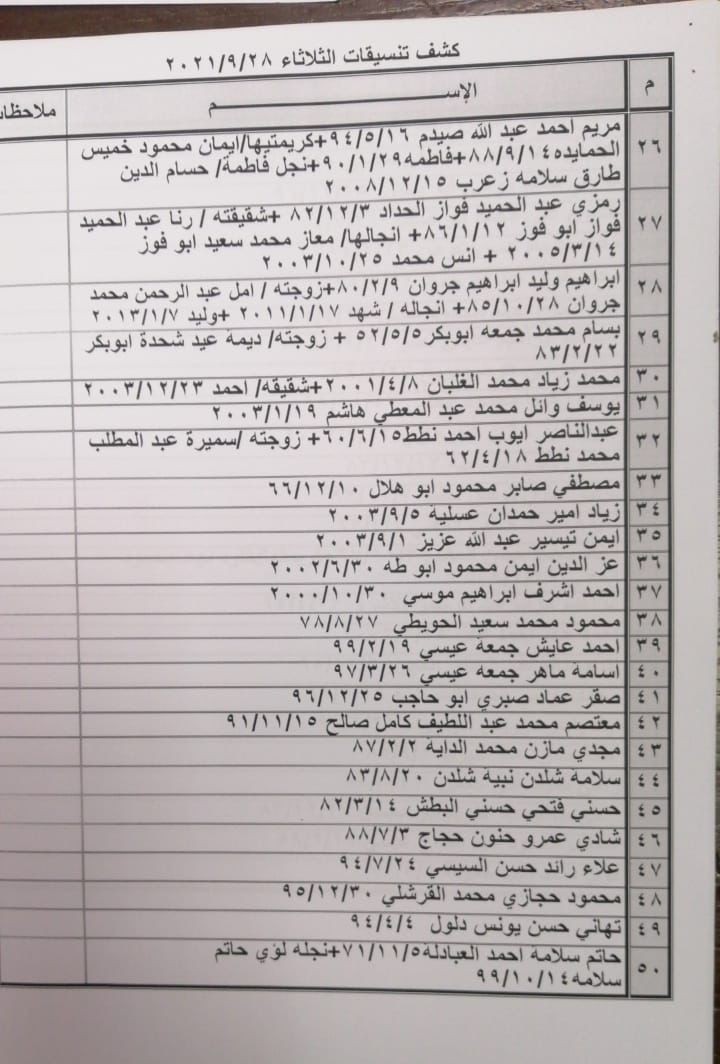 كشف تنسيقات الثلاثاء ٢٠٢١/٩/٢٨
م الإســــــــــــــــم ملاحظات
٢٦ مريم احمد عبد الله صيدم ٩٤/٥/١٦+كريمتيها/ايمان محمود خميس
الحمايده٨٨/٩/١٤+فاطمه٩٠/١/٢٩+نجل فاطمة/ حسام الدين
طارق سلامه زعرب ٢٠٠٨/١٢/١٥
٢٧ رمزي عبد الحميد فواز الحداد ٨٢/١٢/٣ +شقيقته / رنا عبد الحميد
فواز ابو فوز ٨٦/١/١٢+ انجالها/ معاز محمد سعيد ابو فوز
٢٠٠٥/٣/١٤ + انس محمد ٢٠٠٣/١٠/٢٥
٢٨ ابراهيم وليد ابراهيم جروان ٨٠/٢/٩+زوجته / امل عبد الرحمن محمد
جروان ٨٥/١٠/٢٨+ انجاله / شهد ٢٠١١/١/١٧ +وليد ٢٠١٣/١/٧
٢٩ بسام محمد جمعه ابوبكر٥٢/٥/٥ + زوجته/ ديمة عيد شحدة ابوبكر
٨٣/٢/٢٢
٣٠ محمد زياد محمد الغلبان ٢٠٠١/٤/٨+شقيقه/ احمد ٢٠٠٣/١٢/٢٣
٣١ يوسف وائل محمد عبد المعطي هاشم ٢٠٠٣/١/١٩
٣٢ عبدالناصر ايوب احمد نطط٦٠/٦/١٥+ زوجته /سميرة عبد المطلب
محمد نطط ٦٢/٤/١٨
٣٣ مصطفي صابر محمود ابو هلال ٦٦/١٢/١٠
٣٤ زياد امير حمدان عسلية ٢٠٠٣/٩/٥
٣٥ ايمن تيسير عبد الله عزيز ٢٠٠٣/٩/١
٣٦ عز الدين ايمن محمود ابو طه ٢٠٠٢/٦/٣٠
٣٧ احمد اشرف ابراهيم موسي ٢٠٠٠/١٠/٣٠
٣٨ محمود محمد سعيد الحويطي ٧٨/٨/٢٧
٣٩ احمد عايش جمعة عيسي ٩٩/٢/١٩
٤٠ اسامة ماهر جمعه عيسي ٩٧/٣/٢٦
٤١ صقر عماد صبري ابو حاجب ٩٦/١٢/٢٥
٤٢ معتصم محمد عبد اللطيف كامل صالح ٩١/١١/١٥
٤٣ مجدي مازن محمد الداية ٨٧/٢/٢
٤٤ سلامة شلدن نبية شلدن ٨٣/٨/٢٠
٤٥ حسني فتحي حسني البطش ٨٢/٣/١٤
٤٦ شادي عمرو حنون حجاج ٨٨/٧/٣
٤٧ علاء رائد حسن السيسي ٩٤/٧/٢٤
٤٨ محمود حجازي محمد القرشلي ٩٥/١٢/٣٠
٤٩ تهاني حسن يونس دلول ٩٤/٤/٤
٥٠ حاتم سلامة احمد العبادلة٧١/١١/٥+نجله لؤي حاتم
سلامه٩٩/١٠/١٤